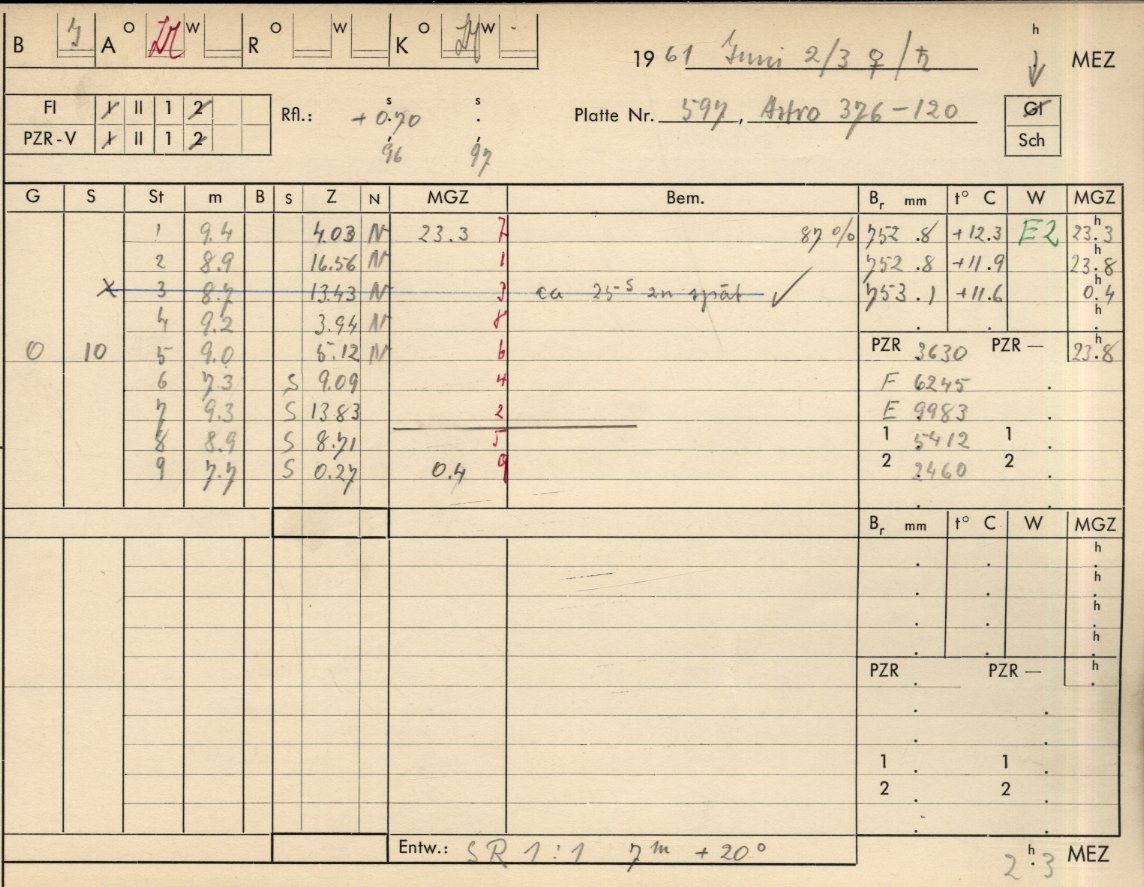 B J A O LM W R O W K O W
19 61 Juni 2/3 ♀/♄ h MEZ
FI I II 1 2 Rfl.: +0.70 s s Platte Nr. 597, Astro 376-120 Gl
PZR-V I II 1 2 96 97 Sch
G S St m B S Z N MGZ Bem. Br mm t° C W MGZ
1 9.4 4.03 N 23.3 7 87% 752.8 +12.3 E2 23.3 h
2 8.9 16.56 N 1 752.8 +11.9 23.8 h
X 3 8.7 13.43 N 3 ca 25 s zu spät ✓ 753.1 +11.6 0.4 h
4 9.2 3.94 N 8 h
0 10 5 9.0 5.12 N 6 PZR 3630 PZR — 23.8 h
6 7.3 S 9.09 4 F 6245
7 9.3 S 13.83 2 E 9983
8 8.9 S 8.71 5 1 5412 1
9 7.7 S 0.27 0.4 9 2 2460 2
Br mm t° C W MGZ
h
h
h
h
PZR PZR — h
1 1
2 2
Entw.: SR 1:1 7 m +20° 2 h 3 MEZ